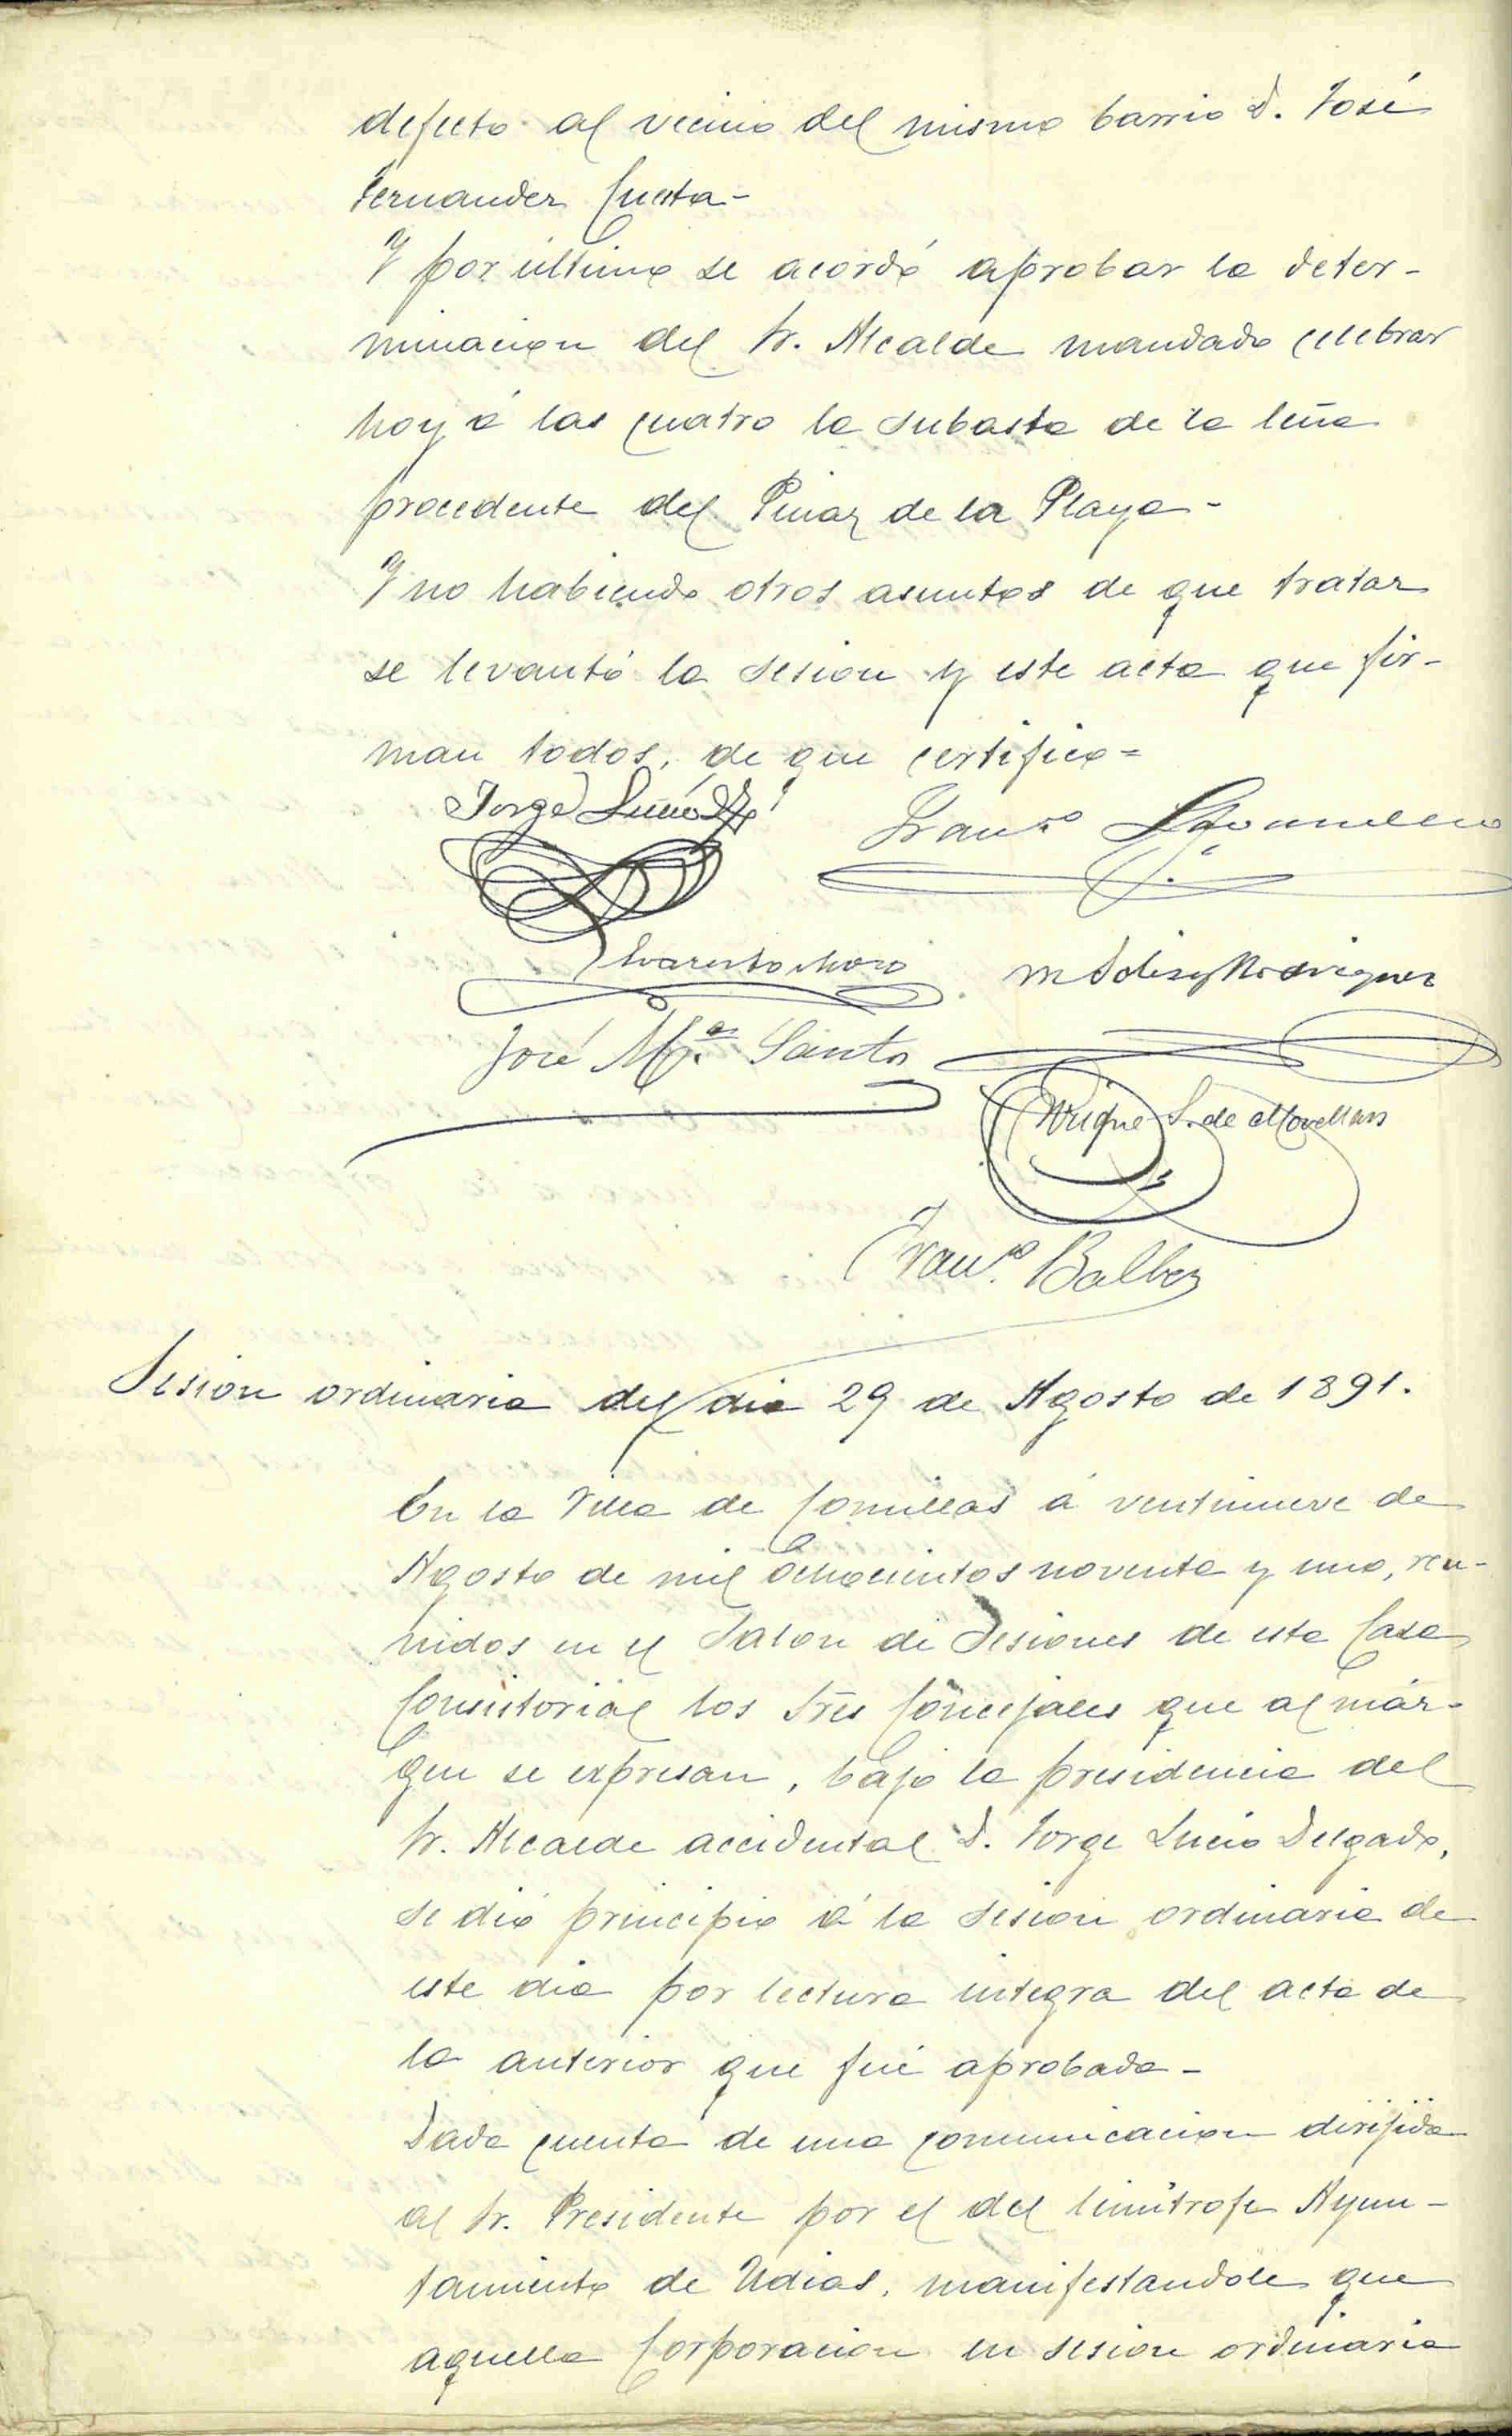 defecto al vecino del mismo barrio D. José
Fernandez Cuesta-
Y por último se acordó aprobar la deter-
minacion del Sr. Alcalde mandado celebrar
hoy á las cuatro la subasta de la leña
procedente del Pinar de la Playa-
Y no habiendo otros asuntos de que tratar
se levantó la sesion y este acta que fir-
man todos, de que certifico=
Jorge Lucio
Franco
Evaristo Moro
Rodriguez
José Mª Santos
Enrique S. de Movellan
Franco. Balbas
Sesion ordinaria del dia 29 de Agosto de 1891.
En la Villa de Comillas á ventinueve de
Agosto de mil ochocientos noventa y uno, reu-
nidos en el Salon de Sesiones de esta Casa
Consistorial los Sres Concejales que al már-
gen se expresan, bajo la presidencia del
Sr. Alcalde accidental D. Jorge Lucio Delgado,
se dió principio á la sesion ordinaria de
este dia por lectura integra del acta de
la anterior que fué aprobada-
Dada cuenta de una comunicacion dirijida
al Sr. Presidente por el del limítrofe Ayun-
tamiento de Udias, manifestandole que
aquella Corporacion en sesion ordinaria